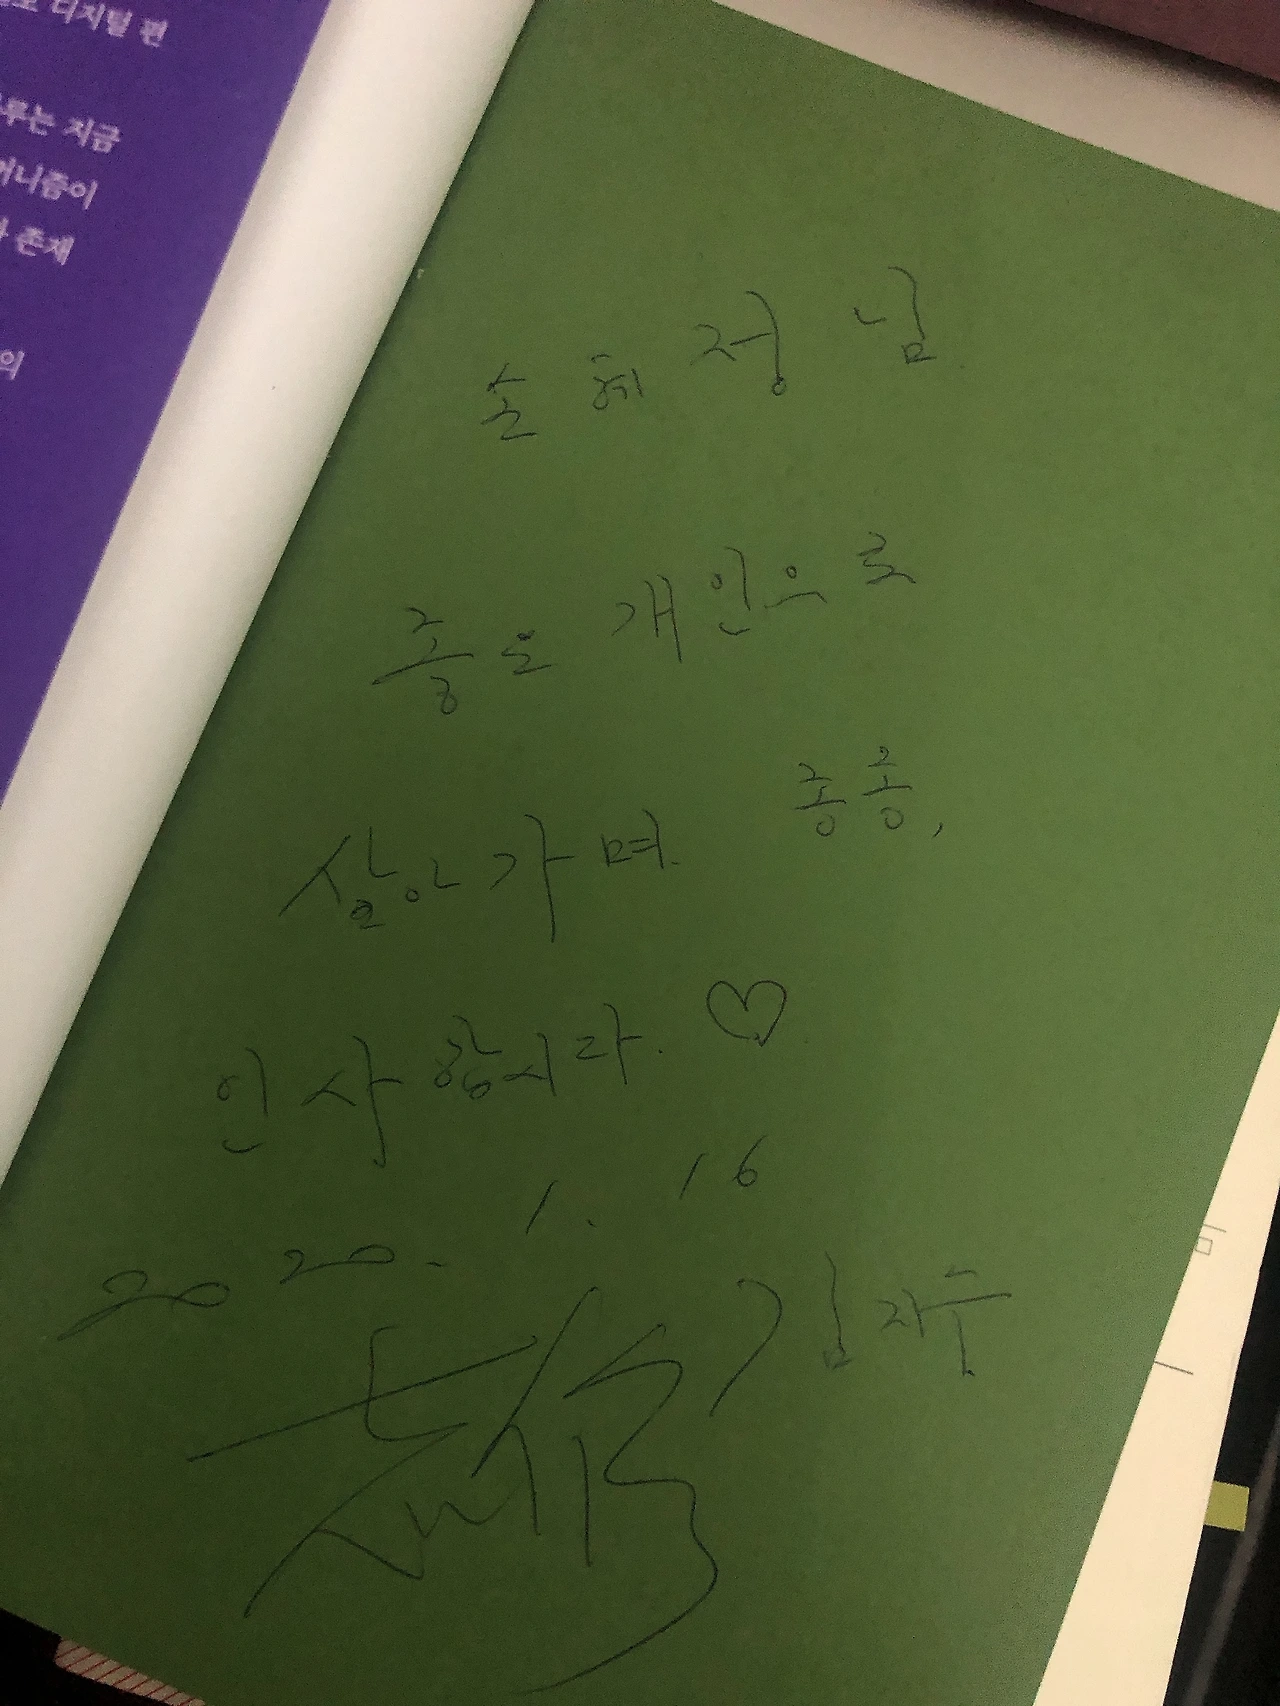 디지털 편
루는 지금
머니즘이
존재
의
손혜정 님
좋은 개인으로
살아가며 종종,
인사합시다. ♡
2020. 1. 16
김지수